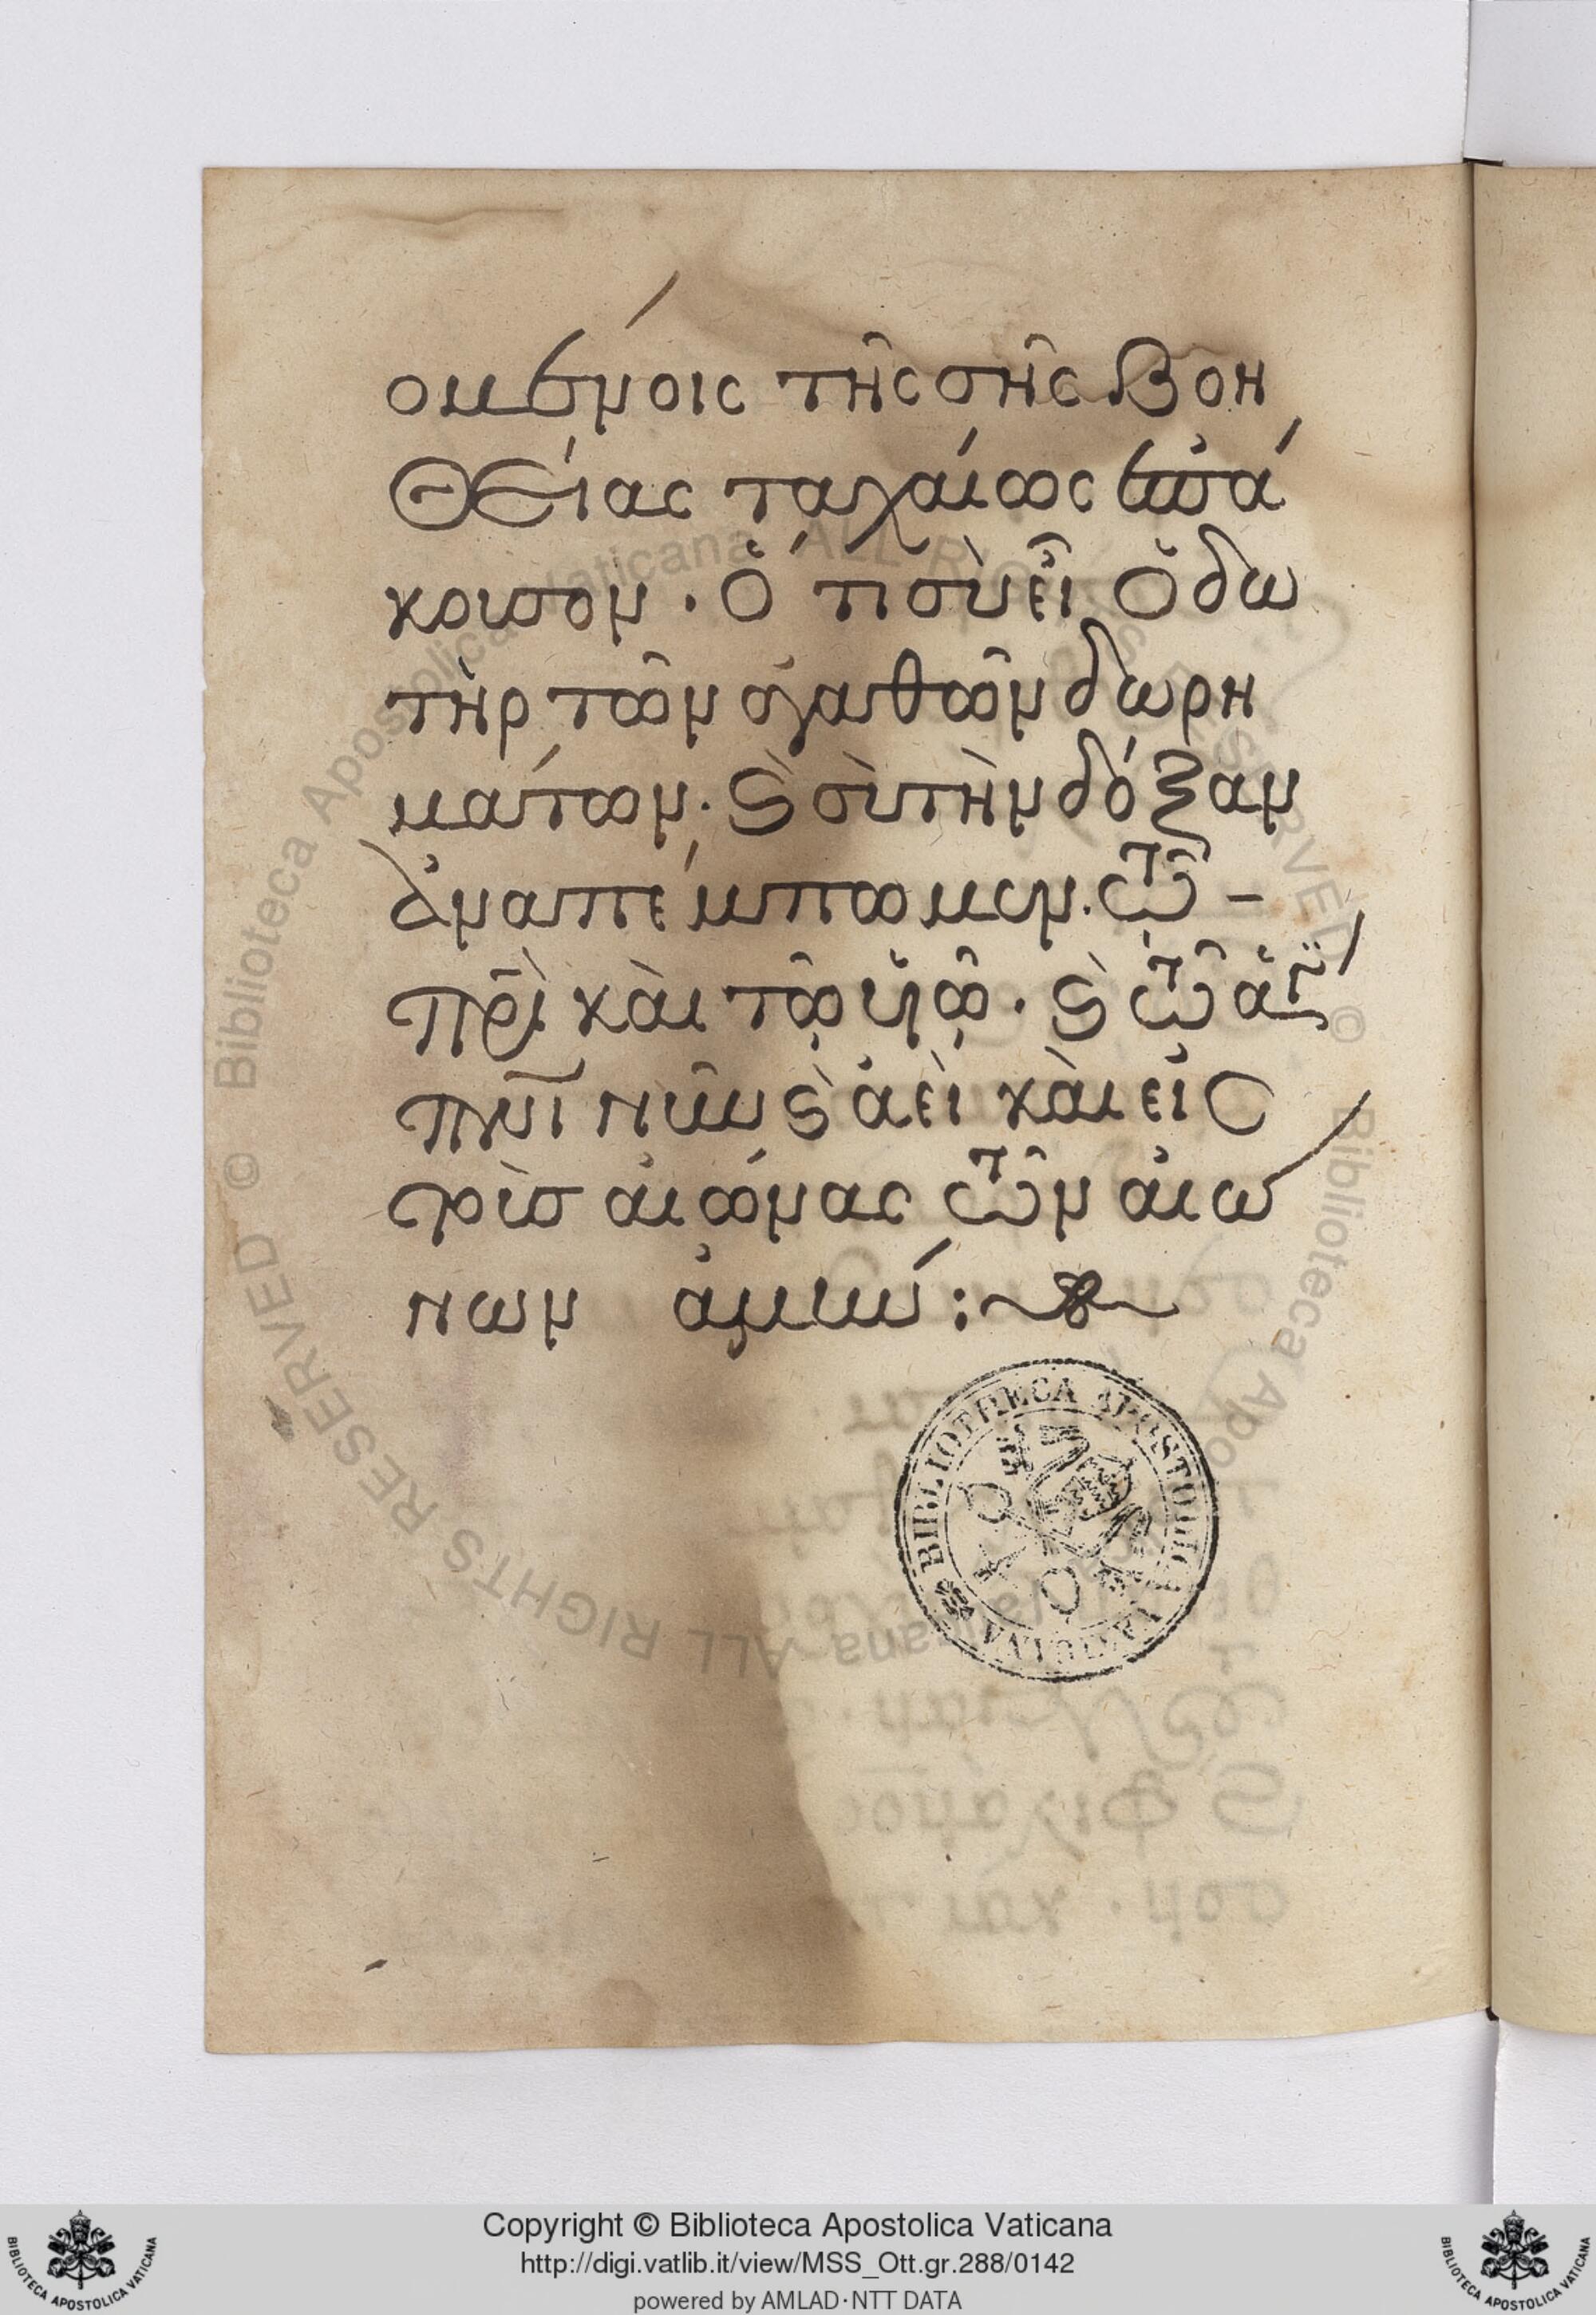 ομένοις τῆς σῆς βοη
θείας ταχαίως ἐπά
κουσον · ὅτι σὺ εἶ ὁ δω
τὴρ τῶν ἀγαθῶν δωρη
μάτων · ϛ σὺ τὴν δόξαν
ἀναπέμπωμεν · τῶ -
πρὶ καὶ τῷ υἱῷ · ϛ τῷ ἁγ
πνι νῦν ϛ ἀεὶ καὶ εἰς
τοὺς αἰῶνας τῶν αἰώ
νων ἀμήν :~
BIBLIOTHECA APOSTOLICA VATICANA
© Biblioteca Apostolica Vaticana ALL RIGHTS RESERVED © Biblioteca Apostolica Vaticana ALL RIGHTS RESERVED
Copyright © Biblioteca Apostolica Vaticana
http://digi.vatlib.it/view/MSS_Ott.gr.288/0142
powered by AMLAD·NTT DATA
BIBLIOTECA APOSTOLICA VATICANA
BIBLIOTECA APOSTOLICA VATICANA